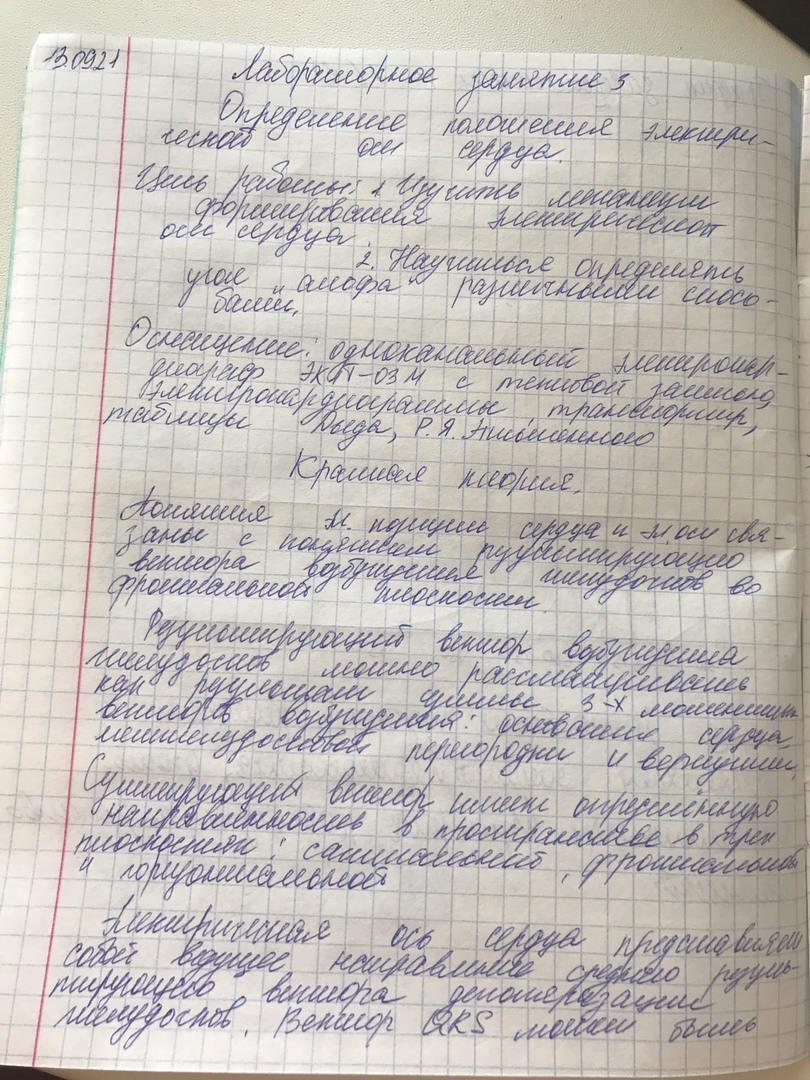 13.09.21
Лабораторное занятие 3
Определение положения электри-
ческой оси сердца.
Цель работы: 1. Изучить механизм
формирования электрической
оси сердца
2. Научиться определять
угол "альфа" различными спосо-
бами.
Оснащение: одноканальный электрокар-
диограф ЭК1Т-03М с тепловой записью,
электрокардиограммы, транспортир,
таблицы Дьеда, Р.Я. Письменного
Краткая теория.
Понятия эл. позиции сердца и эл оси свя-
заны с понятием результирующего
вектора возбуждения желудочков во
фронтальной плоскости.
Результирующий вектор возбуждения
желудочков можно рассматривать
как сумму 3-х моментных
векторов возбуждения: основания сердца,
межжелудочковой перегородки и верхушки.
Суммирующий вектор имеет определённую
направленность в пространстве в трех
плоскостях: сагитальной, фронтальной
и горизонтальной
Электрическая ось сердца представляет
собой ведущее направление среднего резуль-
тирующего вектора деполяризации
желудочков. Вектор QRS может быть